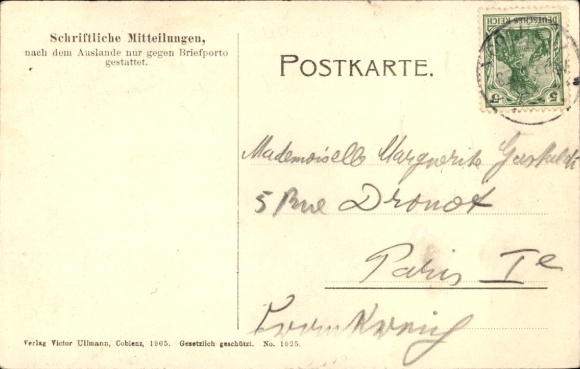 Schriftliche Mitteilungen,
nach dem Auslande nur gegen Briefporto
gestattet.
POSTKARTE.
DEUTSCHES REICH
5 5
Mademoiselle Marguerite
5 Rue Drouot
Paris Ie
Frankreich
Verlag Victor Ullmann, Coblenz, 1905. Gesetzlich geschützt. No. 1025.